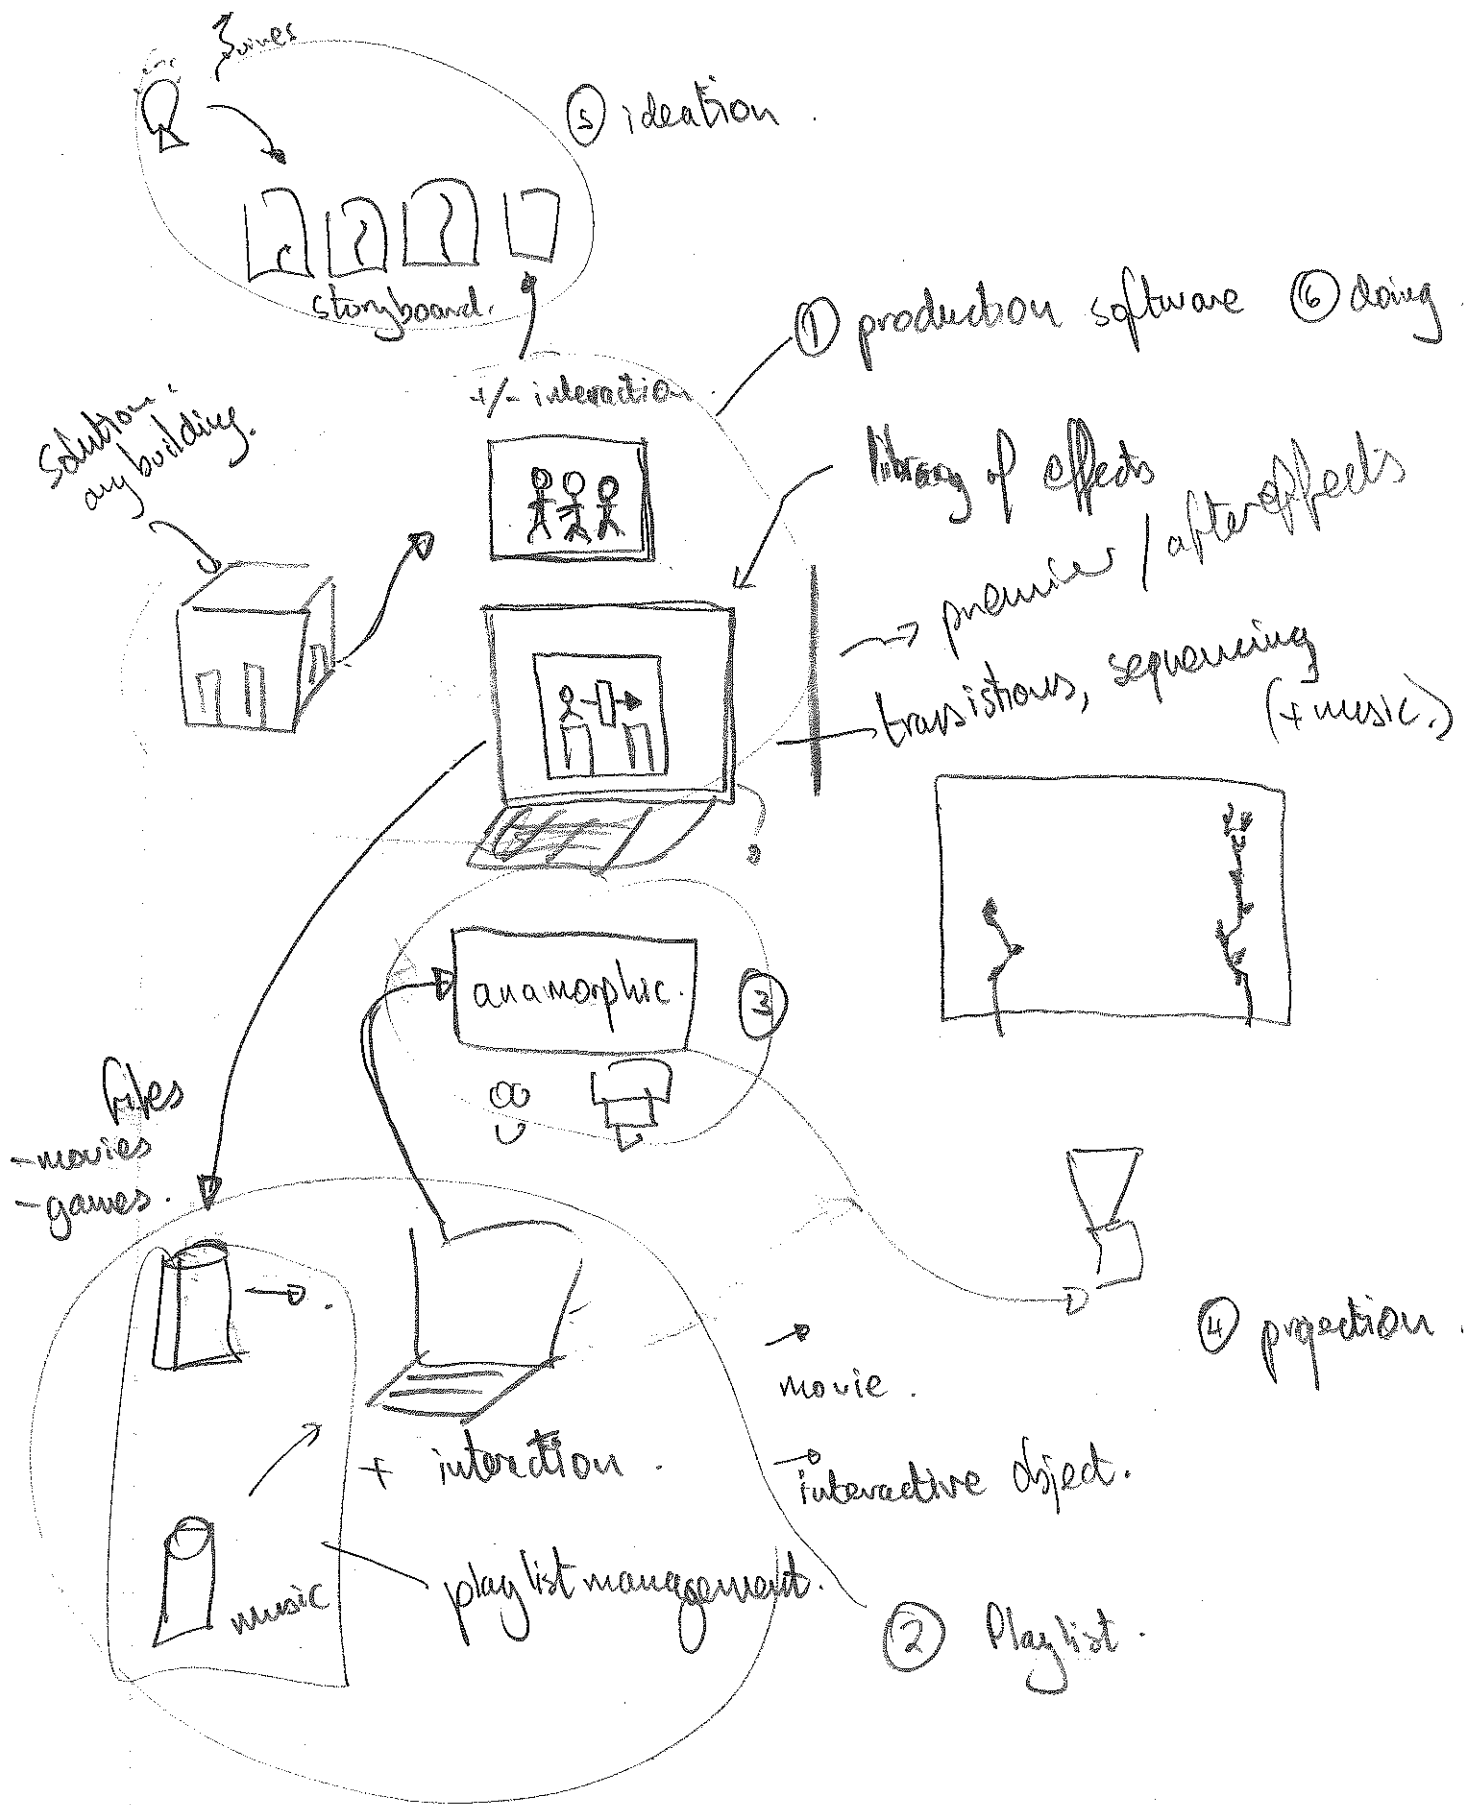 ⑤ ideation.
storyboard.
① production software ⑥ doing.
+/- interaction
solution.
any building.
library of effects
→ premier / after effects
transistions, sequencing
(+ music.)
anamorphic.
③
files
- movies
- games.
④ projection.
→
movie.
+ interaction.
→
interactive object.
playlist management.
music
② Playlist.